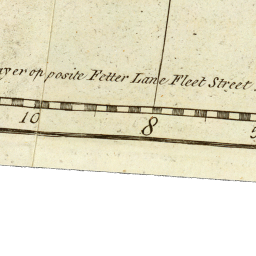 opposite Fetter Lane Fleet Street
10 8